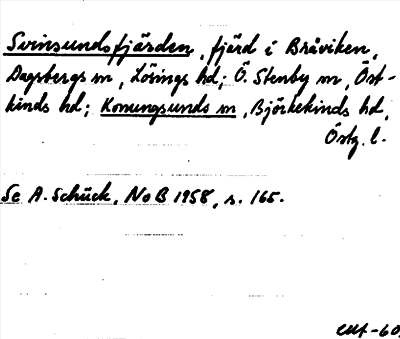 Svinsundsfjärden, fjärd i Bråviken,
Dagsbergs sn, Lösings hd; Ö. Stenby sn, Öst-
kinds hd; Konungsunds sn, Björkekinds hd,
Östg. l.
Se A. Schück, NoB 1958, s. 165.